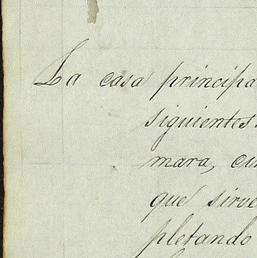 La casa principa
siguientes.
mara, cu
que sirve
pletando